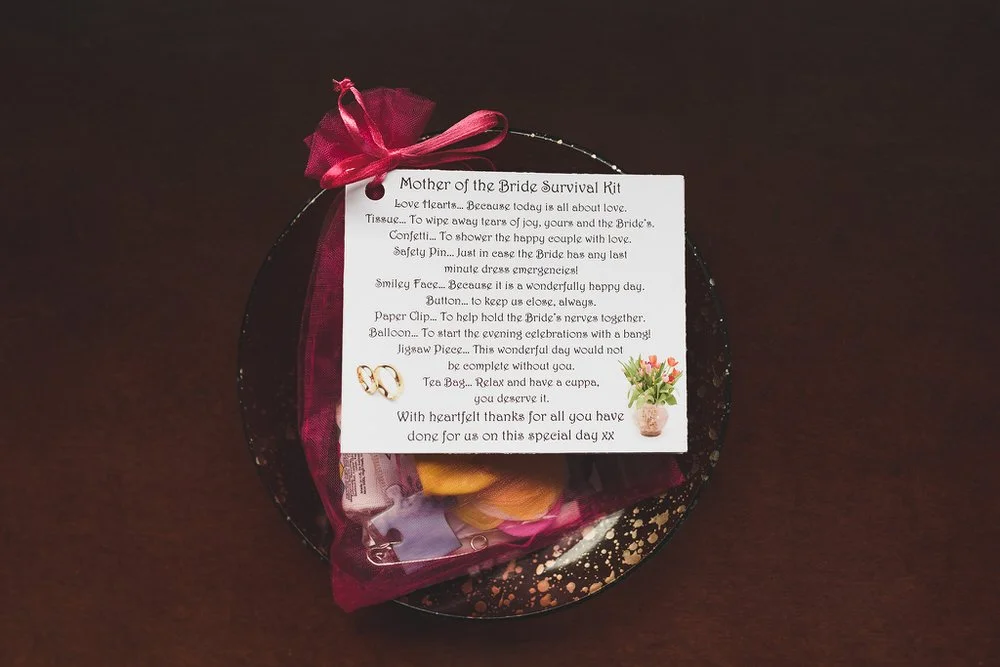 Mother of the Bride Survival Kit
Love Hearts... Because today is all about love.
Tissue... To wipe away tears of joy, yours and the Bride's.
Confetti... To shower the happy couple with love.
Safety Pin... Just in case the Bride has any last
minute dress emergencies!
Smiley Face... Because it is a wonderfully happy day.
Button... to keep us close, always.
Paper Clip... To help hold the Bride's nerves together.
Balloon... To start the evening celebrations with a bang!
Jigsaw Piece... This wonderful day would not
be complete without you.
Tea Bag... Relax and have a cuppa,
you deserve it.
With heartfelt thanks for all you have
done for us on this special day xx